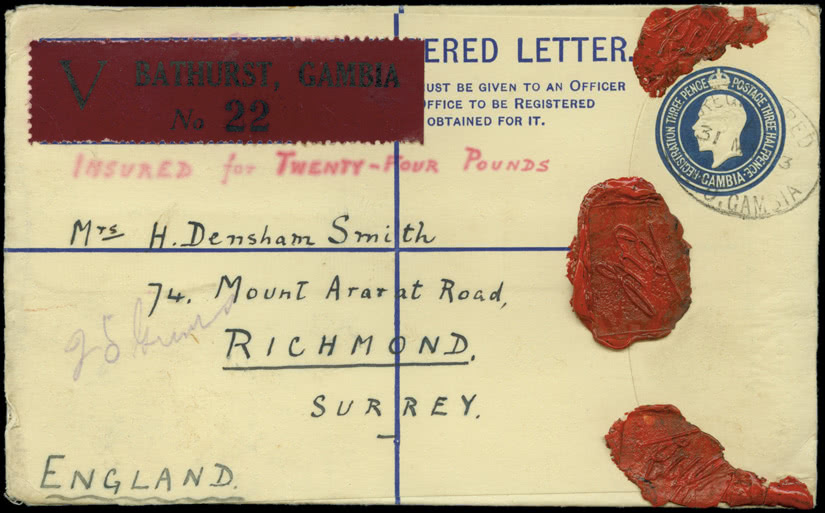 V BATHURST, GAMBIA
No 22
ERED LETTER.
UST BE GIVEN TO AN OFFICER
OFFICE TO BE REGISTERED
OBTAINED FOR IT.
REGISTRATION THREE PENCE · POSTAGE THREE HALFPENCE
GAMBIA
31
GAMBIA
INSURED for TWENTY-FOUR POUNDS
Mrs H. Densham Smith
74. Mount Ararat Road,
RICHMOND.
SURREY.
ENGLAND.